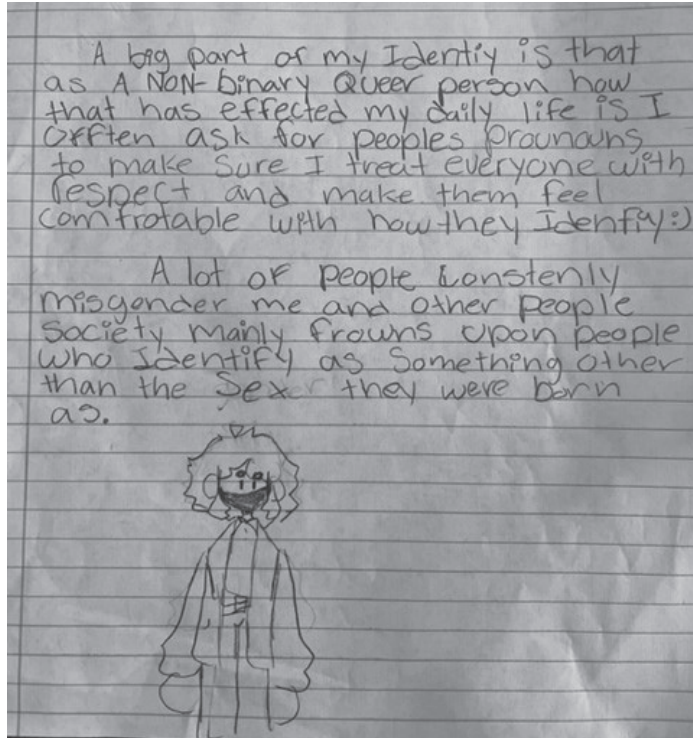 A big part of my Identiy is that
as A NON-binary Queer person how
that has effected my daily life is I
Offten ask for peoples Prounouns
to make sure I treat everyone with
respect and make them feel
comfrotable with how they Identfiy:)
A lot of people constenly
misgender me and other people
society mainly frowns upon people
who Identify as Something other
than the Sex they were born
as.